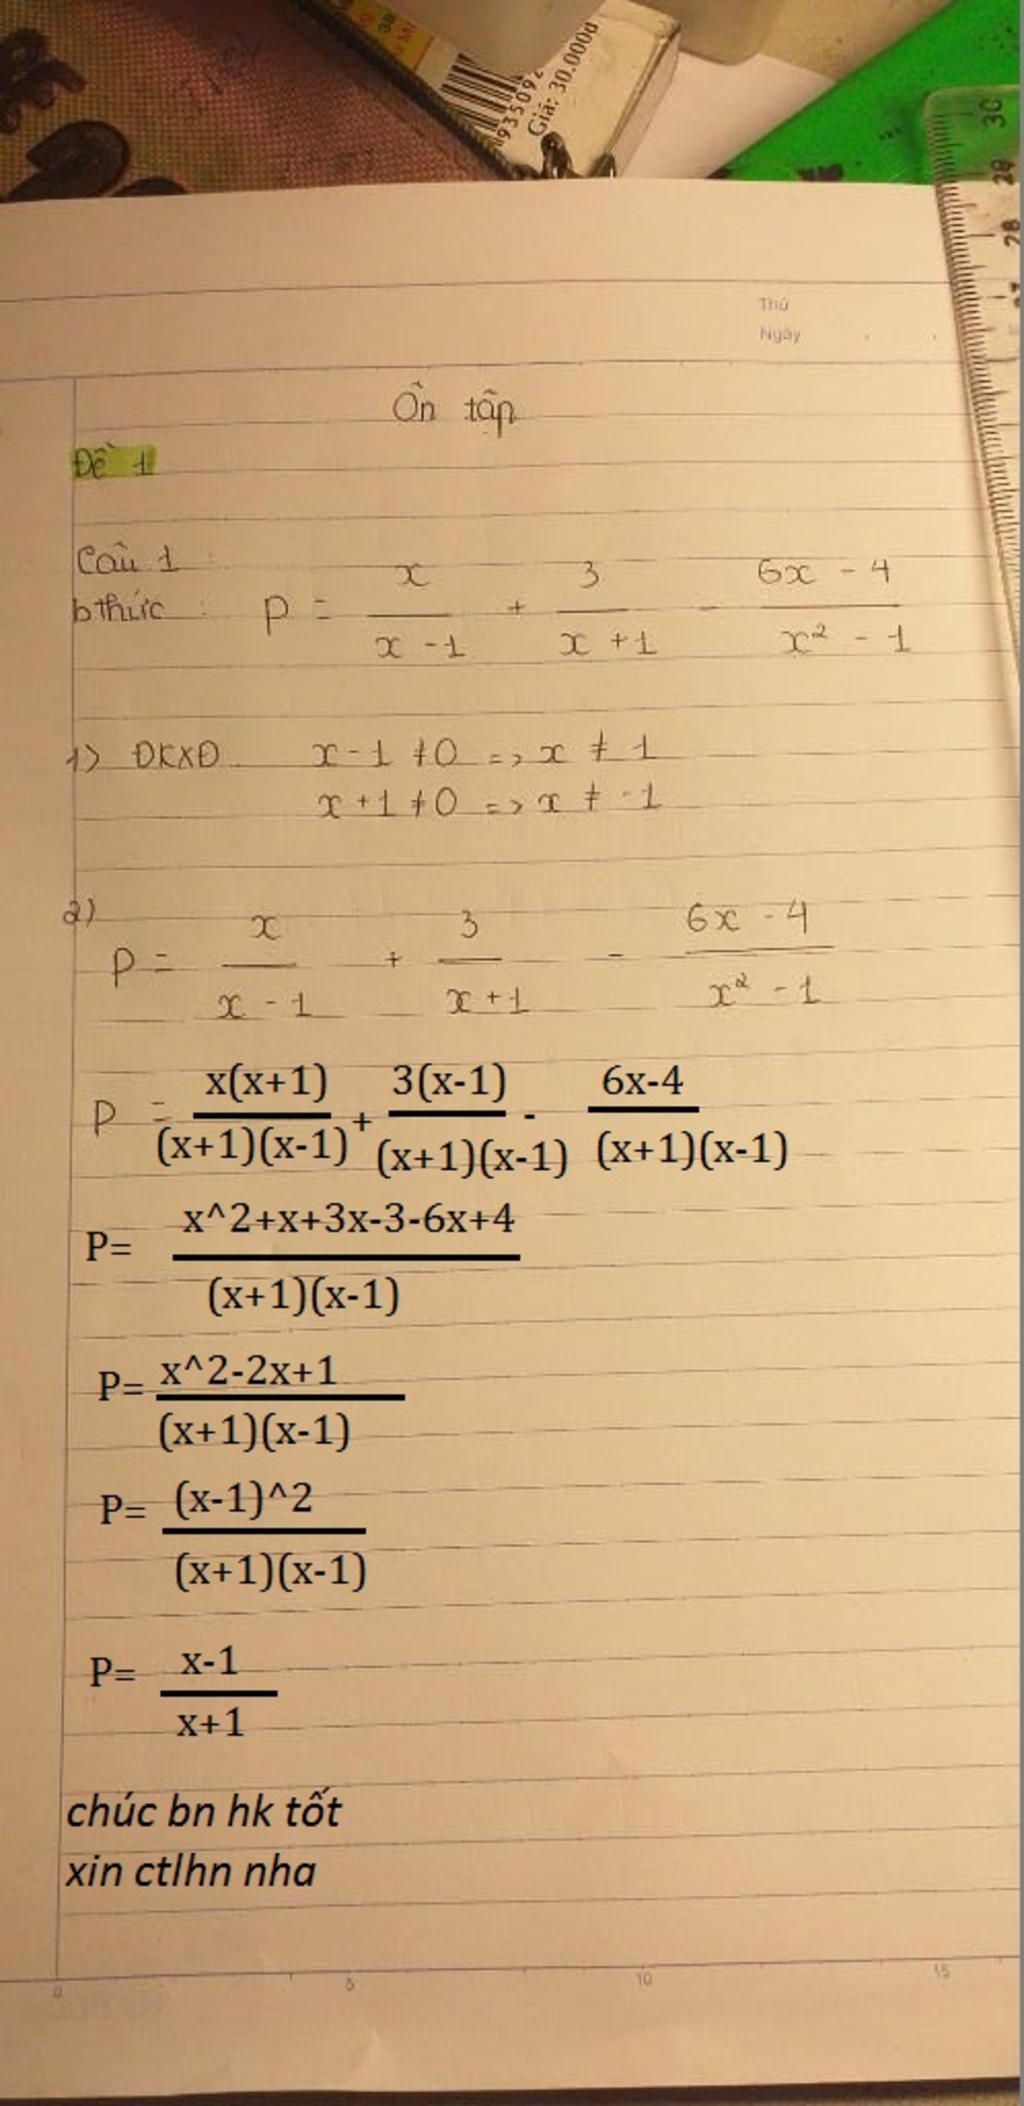 38
935092
Giá: 30.000đ
30
29
28
Thứ
Ngày
Ôn tập
Đề 1
Câu 1 :
b thức : P = x/(x - 1) + 3/(x + 1) - (6x - 4)/(x² - 1)
1) ĐKXĐ x - 1 ≠ 0 => x ≠ 1
x + 1 ≠ 0 => x ≠ -1
2)
P = x/(x - 1) + 3/(x + 1) - (6x - 4)/(x² - 1)
P = x(x+1)/(x+1)(x-1) + 3(x-1)/(x+1)(x-1) - 6x-4/(x+1)(x-1)
P= x^2+x+3x-3-6x+4/(x+1)(x-1)
P= x^2-2x+1/(x+1)(x-1)
P= (x-1)^2/(x+1)(x-1)
P= x-1/x+1
chúc bn hk tốt
xin ctlhn nha
0 5 10 15